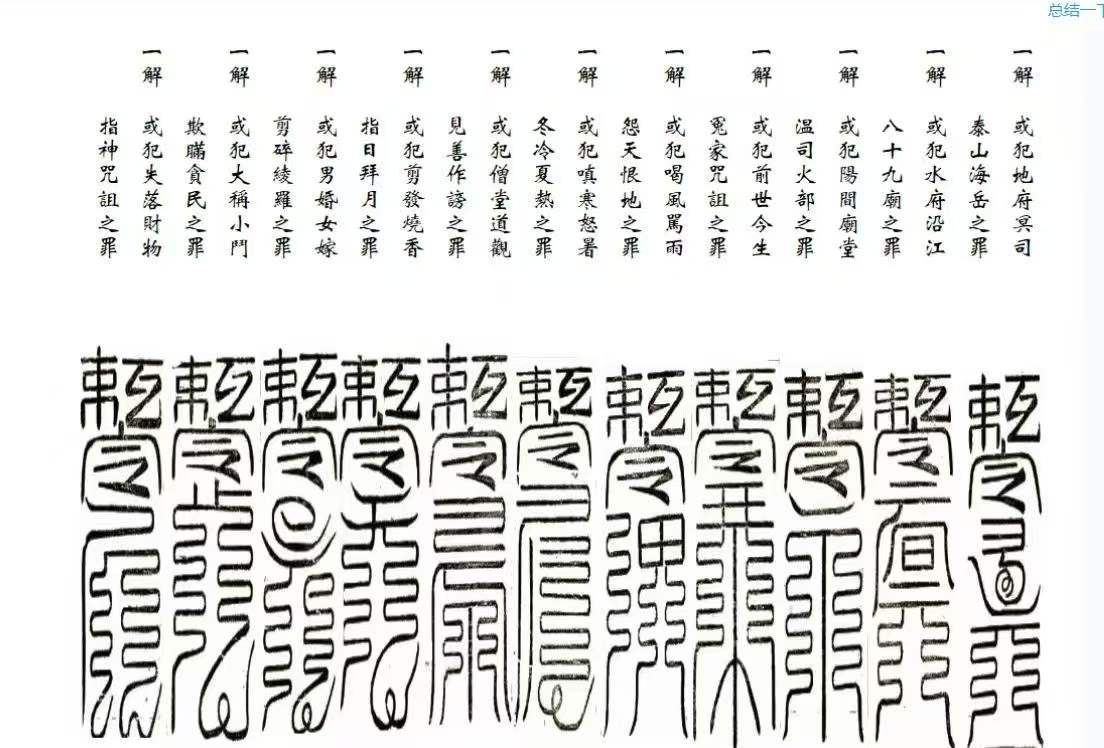 总结一下
一解
或犯地府冥司
泰山海岳之罪
一解
或犯水府沿江
八十九廟之罪
一解
或犯陽間廟堂
溫司火部之罪
一解
或犯前世今生
冤家咒詛之罪
一解
或犯喝風罵雨
怨天恨地之罪
一解
或犯嗔寒怒暑
冬冷夏熱之罪
一解
或犯僧堂道觀
見善作謗之罪
一解
或犯剪發燒香
指日拜月之罪
一解
或犯男婚女嫁
剪碎綾羅之罪
一解
或犯大稱小鬥
欺瞞貪民之罪
一解
或犯失落財物
指神咒詛之罪